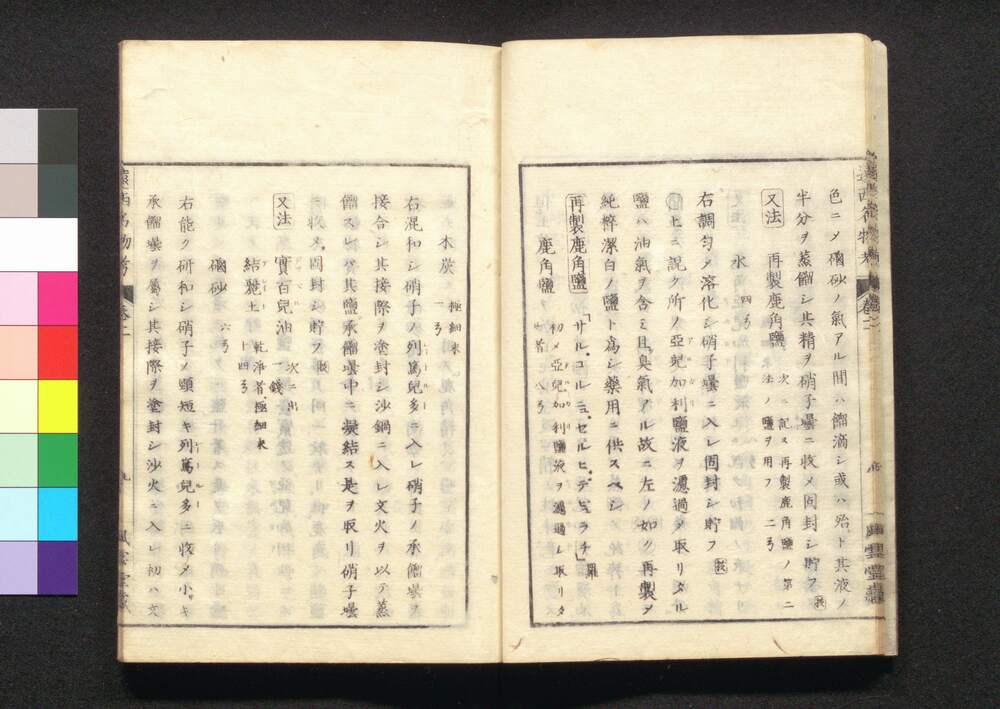 色ニメ磠砂ノ氣アル間ハ餾滴シ或ハ殆ト其液ノ
半分ヲ蒸餾シ其精ヲ硝子壜ニ收メ固封シ貯フ
又法 再製鹿角鹽 次ニ記ス再製鹿角鹽ノ第二
法ノ鹽ヲ用フ 二ゟ
水 四ゟ
右調勻メ溶化シ硝子壜ニ入レ固封シ貯フ
上ニ説ク所ノ亞兒加利鹽液ヲ濾過メ取リタル
鹽ハ油氣ヲ含ミ且臭氣アル故ニ左ノ如ク再製ヲ
純粹潔白ノ鹽ト爲シ藥用ニ供スベシ
再製鹿角鹽 「サル、コルニュ、セルヒ、デピュラチ」羅
鹿角鹽 初メ亞兒加利鹽液ヲ濾過シ取リタ
ル者 八ゟ
木炭 極細末
一ゟ
右混和シ硝子ノ列篤兒多ニ入レ硝子ノ承餾壜ヲ
接合シ其接際ヲ塗封シ沙鍋ニ入レ文火ヲ以テ蒸
餾スレバ其鹽承餾壜中ニ凝結ス是ヲ取リ硝子壜
ニ收メ固封シ貯フ
又法 寶百兒油 次ニ出
一錢
結麗土 乾淨者極細末
十四ゟ
磠砂 六ゟ
右能ク研和シ硝子メ頸短キ列篤兒多ニ收メ小キ
承餾壜ヲ屬シ其接際ヲ塗封シ沙火ニ入レ初ハ文
遠西名物考 卷二 九 風雲堂藏